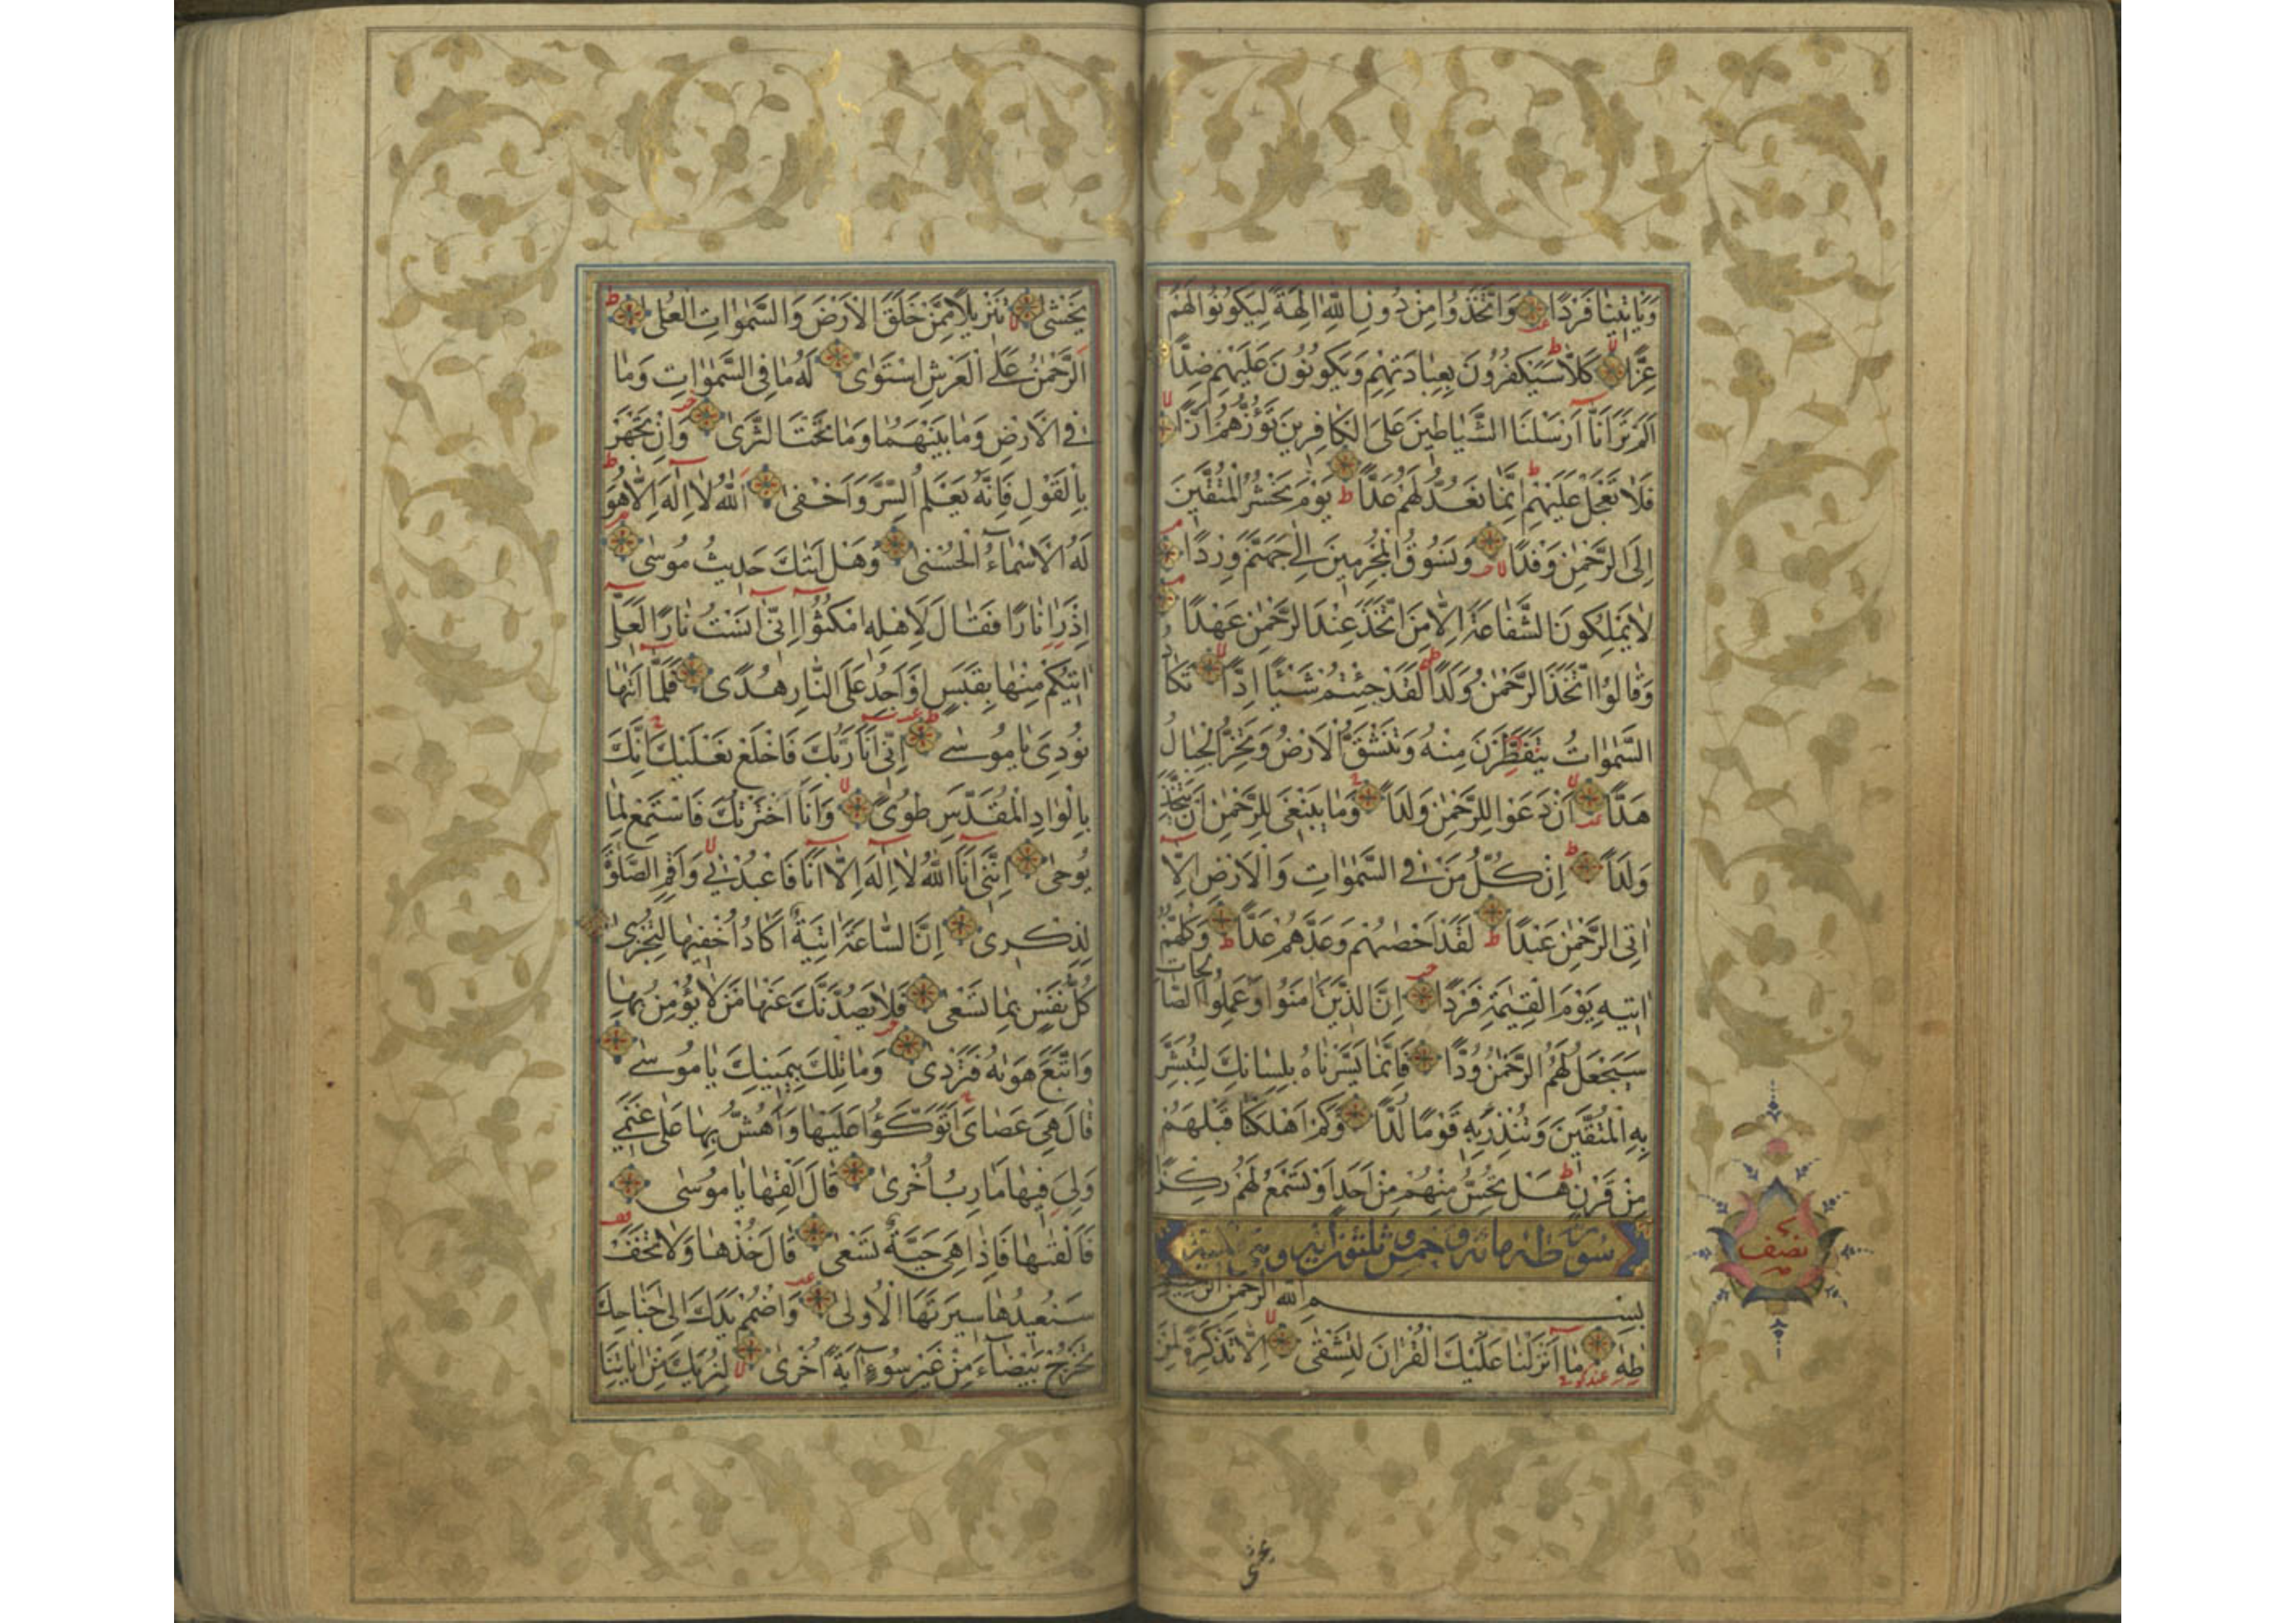 وَيَأْتِينَا فَرْدًا وَاتَّخَذُوا مِنْ دُونِ اللَّهِ آلِهَةً لِيَكُونُوا لَهُمْ
عِزًّا كَلَّا سَيَكْفُرُونَ بِعِبَادَتِهِمْ وَيَكُونُونَ عَلَيْهِمْ ضِدًّا
أَلَمْ تَرَ أَنَّا أَرْسَلْنَا الشَّيَاطِينَ عَلَى الْكَافِرِينَ تَؤُزُّهُمْ أَزًّا
فَلَا تَعْجَلْ عَلَيْهِمْ إِنَّمَا نَعُدُّ لَهُمْ عَدًّا يَوْمَ نَحْشُرُ الْمُتَّقِينَ
إِلَى الرَّحْمٰنِ وَفْدًا وَنَسُوقُ الْمُجْرِمِينَ إِلَى جَهَنَّمَ وِرْدًا
لَا يَمْلِكُونَ الشَّفَاعَةَ إِلَّا مَنِ اتَّخَذَ عِنْدَ الرَّحْمٰنِ عَهْدًا
وَقَالُوا اتَّخَذَ الرَّحْمٰنُ وَلَدًا لَقَدْ جِئْتُمْ شَيْئًا إِدًّا تَكَادُ
السَّمٰوَاتُ يَتَفَطَّرْنَ مِنْهُ وَتَنْشَقُّ الْأَرْضُ وَتَخِرُّ الْجِبَالُ
هَدًّا أَنْ دَعَوْا لِلرَّحْمٰنِ وَلَدًا وَمَا يَنْبَغِي لِلرَّحْمٰنِ أَنْ يَتَّخِذَ
وَلَدًا إِنْ كُلُّ مَنْ فِي السَّمٰوَاتِ وَالْأَرْضِ إِلَّا
آتِي الرَّحْمٰنِ عَبْدًا لَقَدْ أَحْصٰيهُمْ وَعَدَّهُمْ عَدًّا وَكُلُّهُمْ
آتِيهِ يَوْمَ الْقِيٰمَةِ فَرْدًا إِنَّ الَّذِينَ آمَنُوا وَعَمِلُوا الصَّالِحَاتِ
سَيَجْعَلُ لَهُمُ الرَّحْمٰنُ وُدًّا فَإِنَّمَا يَسَّرْنَاهُ بِلِسَانِكَ لِتُبَشِّرَ
بِهِ الْمُتَّقِينَ وَتُنْذِرَ بِهِ قَوْمًا لُدًّا وَكَمْ أَهْلَكْنَا قَبْلَهُمْ
مِنْ قَرْنٍ هَلْ تُحِسُّ مِنْهُمْ مِنْ أَحَدٍ أَوْ تَسْمَعُ لَهُمْ رِكْزًا
سورة طه مائة وخمس وثلثون آية
بسم الله الرحمن الرحيم
طٰهٰ مَا أَنْزَلْنَا عَلَيْكَ الْقُرْآنَ لِتَشْقٰى إِلَّا تَذْكِرَةً لِمَنْ
نصف
يخشى
يَخْشٰى تَنْزِيلًا مِمَّنْ خَلَقَ الْأَرْضَ وَالسَّمٰوَاتِ الْعُلٰى
الرَّحْمٰنُ عَلَى الْعَرْشِ اسْتَوٰى لَهُ مَا فِي السَّمٰوَاتِ وَمَا
فِي الْأَرْضِ وَمَا بَيْنَهُمَا وَمَا تَحْتَ الثَّرٰى وَإِنْ تَجْهَرْ
بِالْقَوْلِ فَإِنَّهُ يَعْلَمُ السِّرَّ وَأَخْفٰى اللَّهُ لَا إِلٰهَ إِلَّا هُوَ
لَهُ الْأَسْمَاءُ الْحُسْنٰى وَهَلْ أَتٰيكَ حَدِيثُ مُوسٰى
إِذْ رَأٰى نَارًا فَقَالَ لِأَهْلِهِ امْكُثُوا إِنِّي آنَسْتُ نَارًا لَعَلِّي
آتِيكُمْ مِنْهَا بِقَبَسٍ أَوْ أَجِدُ عَلَى النَّارِ هُدًى فَلَمَّا أَتٰيهَا
نُودِيَ يَا مُوسٰى إِنِّي أَنَا رَبُّكَ فَاخْلَعْ نَعْلَيْكَ إِنَّكَ
بِالْوَادِ الْمُقَدَّسِ طُوًى وَأَنَا اخْتَرْتُكَ فَاسْتَمِعْ لِمَا
يُوحٰى إِنَّنِي أَنَا اللَّهُ لَا إِلٰهَ إِلَّا أَنَا فَاعْبُدْنِي وَأَقِمِ الصَّلٰوةَ
لِذِكْرِي إِنَّ السَّاعَةَ آتِيَةٌ أَكَادُ أُخْفِيهَا لِتُجْزٰى
كُلُّ نَفْسٍ بِمَا تَسْعٰى فَلَا يَصُدَّنَّكَ عَنْهَا مَنْ لَا يُؤْمِنُ بِهَا
وَاتَّبَعَ هَوٰيهُ فَتَرْدٰى وَمَا تِلْكَ بِيَمِينِكَ يَا مُوسٰى
قَالَ هِيَ عَصَايَ أَتَوَكَّؤُا عَلَيْهَا وَأَهُشُّ بِهَا عَلَى غَنَمِي
وَلِيَ فِيهَا مَآرِبُ أُخْرٰى قَالَ أَلْقِهَا يَا مُوسٰى
فَأَلْقٰيهَا فَإِذَا هِيَ حَيَّةٌ تَسْعٰى قَالَ خُذْهَا وَلَا تَخَفْ
سَنُعِيدُهَا سِيرَتَهَا الْأُولٰى وَاضْمُمْ يَدَكَ إِلَى جَنَاحِكَ
تَخْرُجْ بَيْضَاءَ مِنْ غَيْرِ سُوءٍ آيَةً أُخْرٰى لِنُرِيَكَ مِنْ آيَاتِنَا